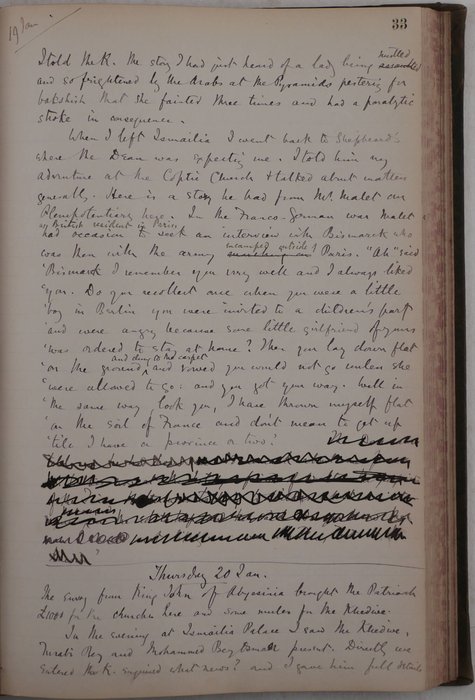 19 Jan
33
I told the K. the story I had just heard of a lady being mobbed
and so frightened by the Arabs at the Pyramids pestering for
bakshish that she fainted three times and had a paralytic
stroke in consequence.
When I left Ismailia I went back to Shepheard's
where the Dean was expecting me. I told him my
adventure at the Coptic Church & talked about matters
generally. Here is a story he had from Mr. Malet our
Plenipotentiary here. In the Franco-German war Malet
as British resident in Paris
had occasion to seek an interview with Bismarck who
was then with the army encamped outside Paris. "Ah" said
'Bismarck I remember you very well and I always liked
'you. Do you recollect once when you were a little
'boy in Berlin you were invited to a children's party
'and were angry because some little girlfriend of yours
'was ordered to stay at home? Then you lay down flat
'on the ground and clung to the carpet and vowed you would not go unless she
'were allowed to go: and you got your way. Well in
'the same way, look you, I have thrown myself flat
'on the soil of France and don't mean to get up
'till I have a province or two?
Thursday 20 Jan.
The envoy from King John of Abyssinia brought the Patriarch
£1000 for the churches here and some mules for the Khedive.
In the evening at Ismailia Palace I saw the Khedive,
Turabi Bey and Mohammed Bey present. Directly we
entered the K. enquired what news? and I gave him full details